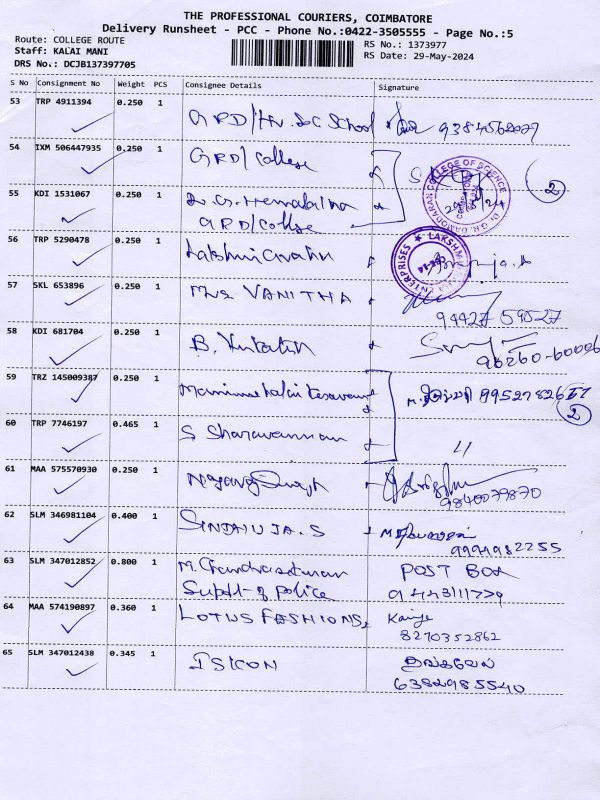 THE PROFESSIONAL COURIERS, COIMBATORE
Delivery Runsheet - PCC - Phone No.:0422-3505555 - Page No.:5
Route: COLLEGE ROUTE
Staff: KALAI MANI
DRS No.: DCJB137397705
RS No.: 1373977
RS Date: 29-May-2024
S No Consignment No Weight PCS Consignee Details Signature
53 TRP 4911394 0.250 1
GRD/Hr. Sec School
54 IXM 506447935 0.250 1
GRD/College
COLLEGE OF SCIENCE
2
55 KDI 1531067 0.250 1
GRD/College
56 TRP 5290478 0.250 1
ENTERPRISES
57 SKL 653896 0.250 1
Mrs VANITHA
94427 59527
58 KDI 681704 0.250 1
B. Venkatesh
96260-60006
59 TRZ 145009387 0.250 1
2
60 TRP 7746197 0.465 1
S Sharavannan
61 MAA 575570930 0.250 1
9840079870
62 SLM 346981104 0.400 1
SINDHUJA.S
63 SLM 347012852 0.800 1
M. Chandrasekaran
Supdt of police
POST BOX
9443111779
64 MAA 574190897 0.360 1
LOTUS FASHIONS,
8270352862
65 SLM 347012438 0.345 1
ISICON
6382985540